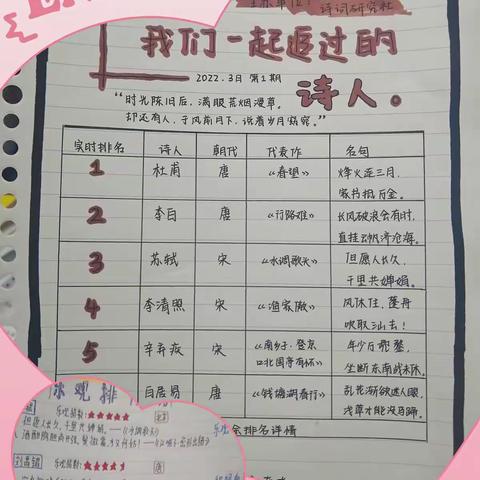 诗词研究社
我们一起追过的
诗人。
2022.3月 第1期
“时光陈旧后，满眼荒烟漫草。
却还有人，于风前月下，说着岁月窈窕。”
实时排名 诗人 朝代 代表作 名句
1 杜甫 唐 《春望》 烽火连三月，
家书抵万金。
2 李白 唐 《行路难》 长风破浪会有时，
直挂云帆济沧海。
3 苏轼 宋 《水调歌头》 但愿人长久，
千里共婵娟。
4 李清照 宋 《渔家傲》 风休住，蓬舟
吹取三山去！
5 辛弃疾 宋 《南乡子·登京 年少万兜鍪，
口北固亭有怀》 坐断东南战未休。
白居易 唐 《钱塘湖春行》 乱花渐欲迷人眼，
浅草才能没马蹄。
排名详情
乐观排
乐观指数：★★★★★
但愿人长久，千里共婵娟。——《水调歌头》
刘禹锡 乐观指数：★★★★